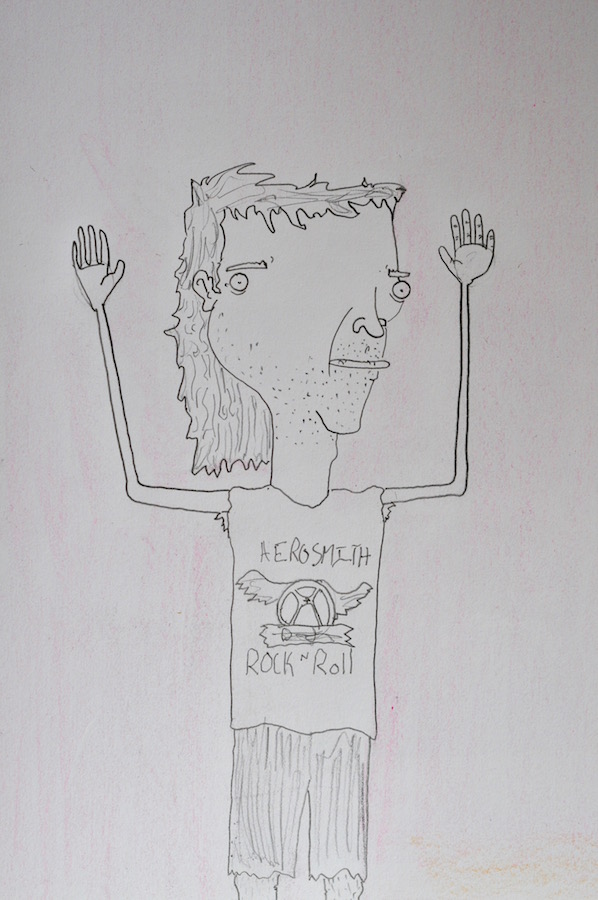 AEROSMITH
ROCK ~ Roll